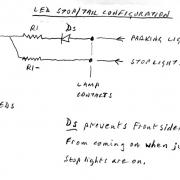 LED STOP/TAIL CONFIGURATION
R1 D5
PARKING LIG
R1
STOPLIGHT
LAMP
CONTACTS
EDS
D5 prevents Frontside
From coming on when ju
Stop lights are on.